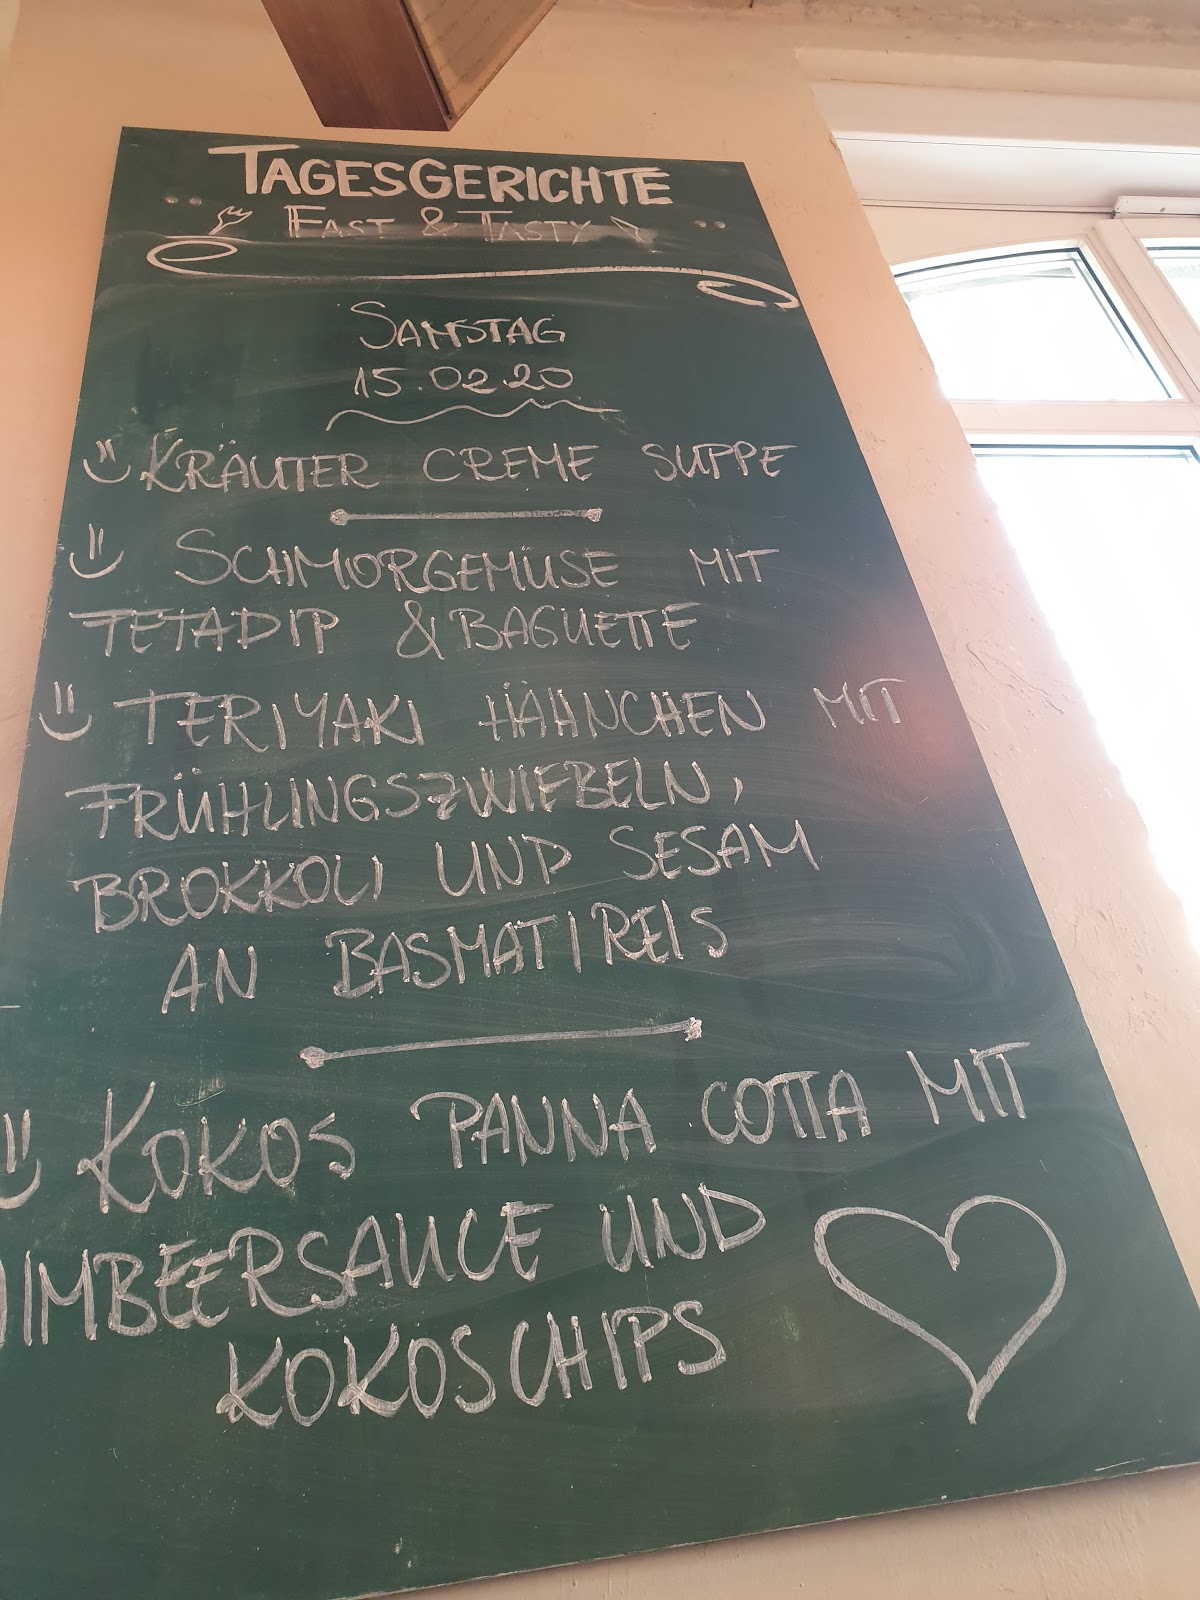 TAGESGERICHTE
FAST & TASTY
SAMSTAG
15.02.20
KRÄUTER CREME SUPPE
SCHMORGEMÜSE MIT
FETADIP & BAGUETTE
TERIYAKI HÄHNCHEN MIT
FRÜHLINGSZWIEBELN,
BROKKOLI UND SESAM
AN BASMATIREIS
KOKOS PANNA COTTA MIT
HIMBEERSAUCE UND
KOKOSCHIPS